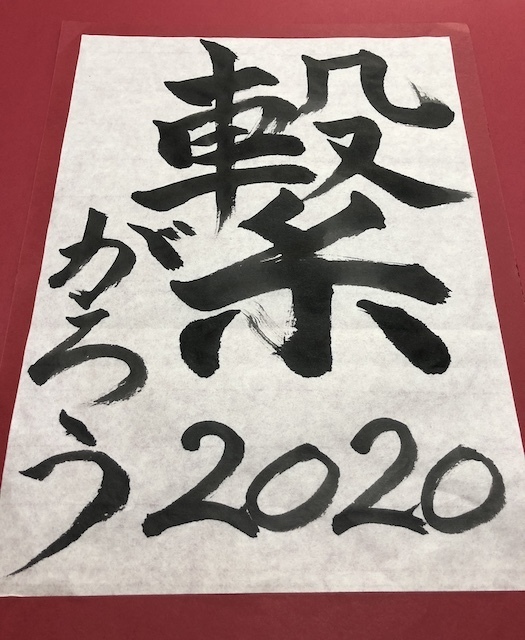 繋
がろう
2020